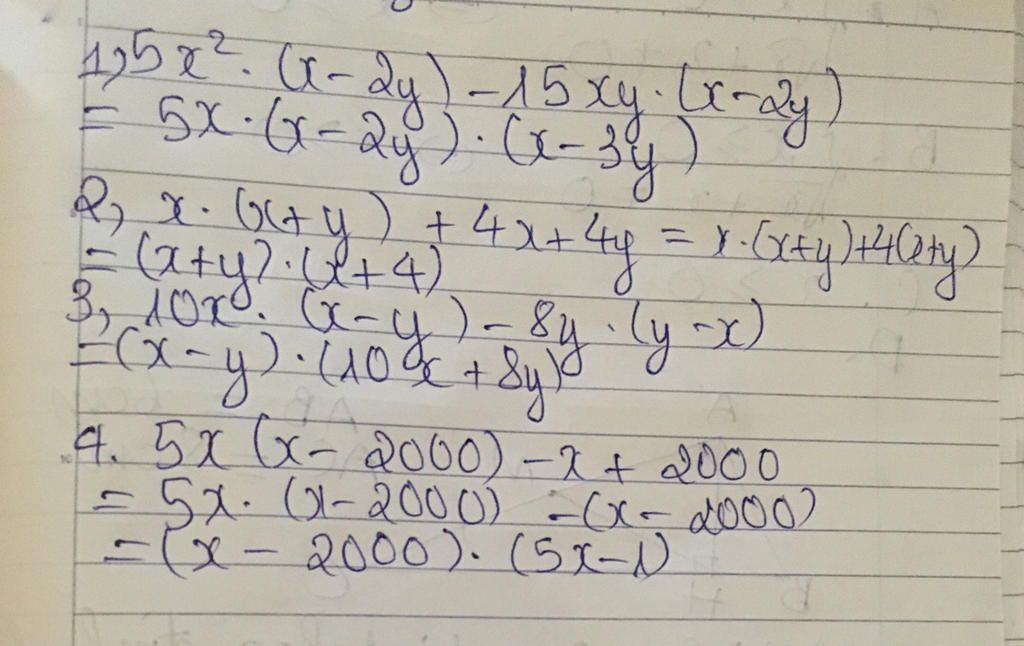 1, 5x². (x - 2y) - 15xy. (x - 2y)
= 5x. (x - 2y). (x - 3y)
2, x. (x+y) + 4x + 4y = x.(x+y)+4(x+y)
= (x+y).(x+4)
3, 10x. (x - y) - 8y. (y - x)
= (x - y). (10x + 8y)
4. 5x (x - 2000) - x + 2000
= 5x. (x - 2000) - (x - 2000)
= (x - 2000). (5x - 1)